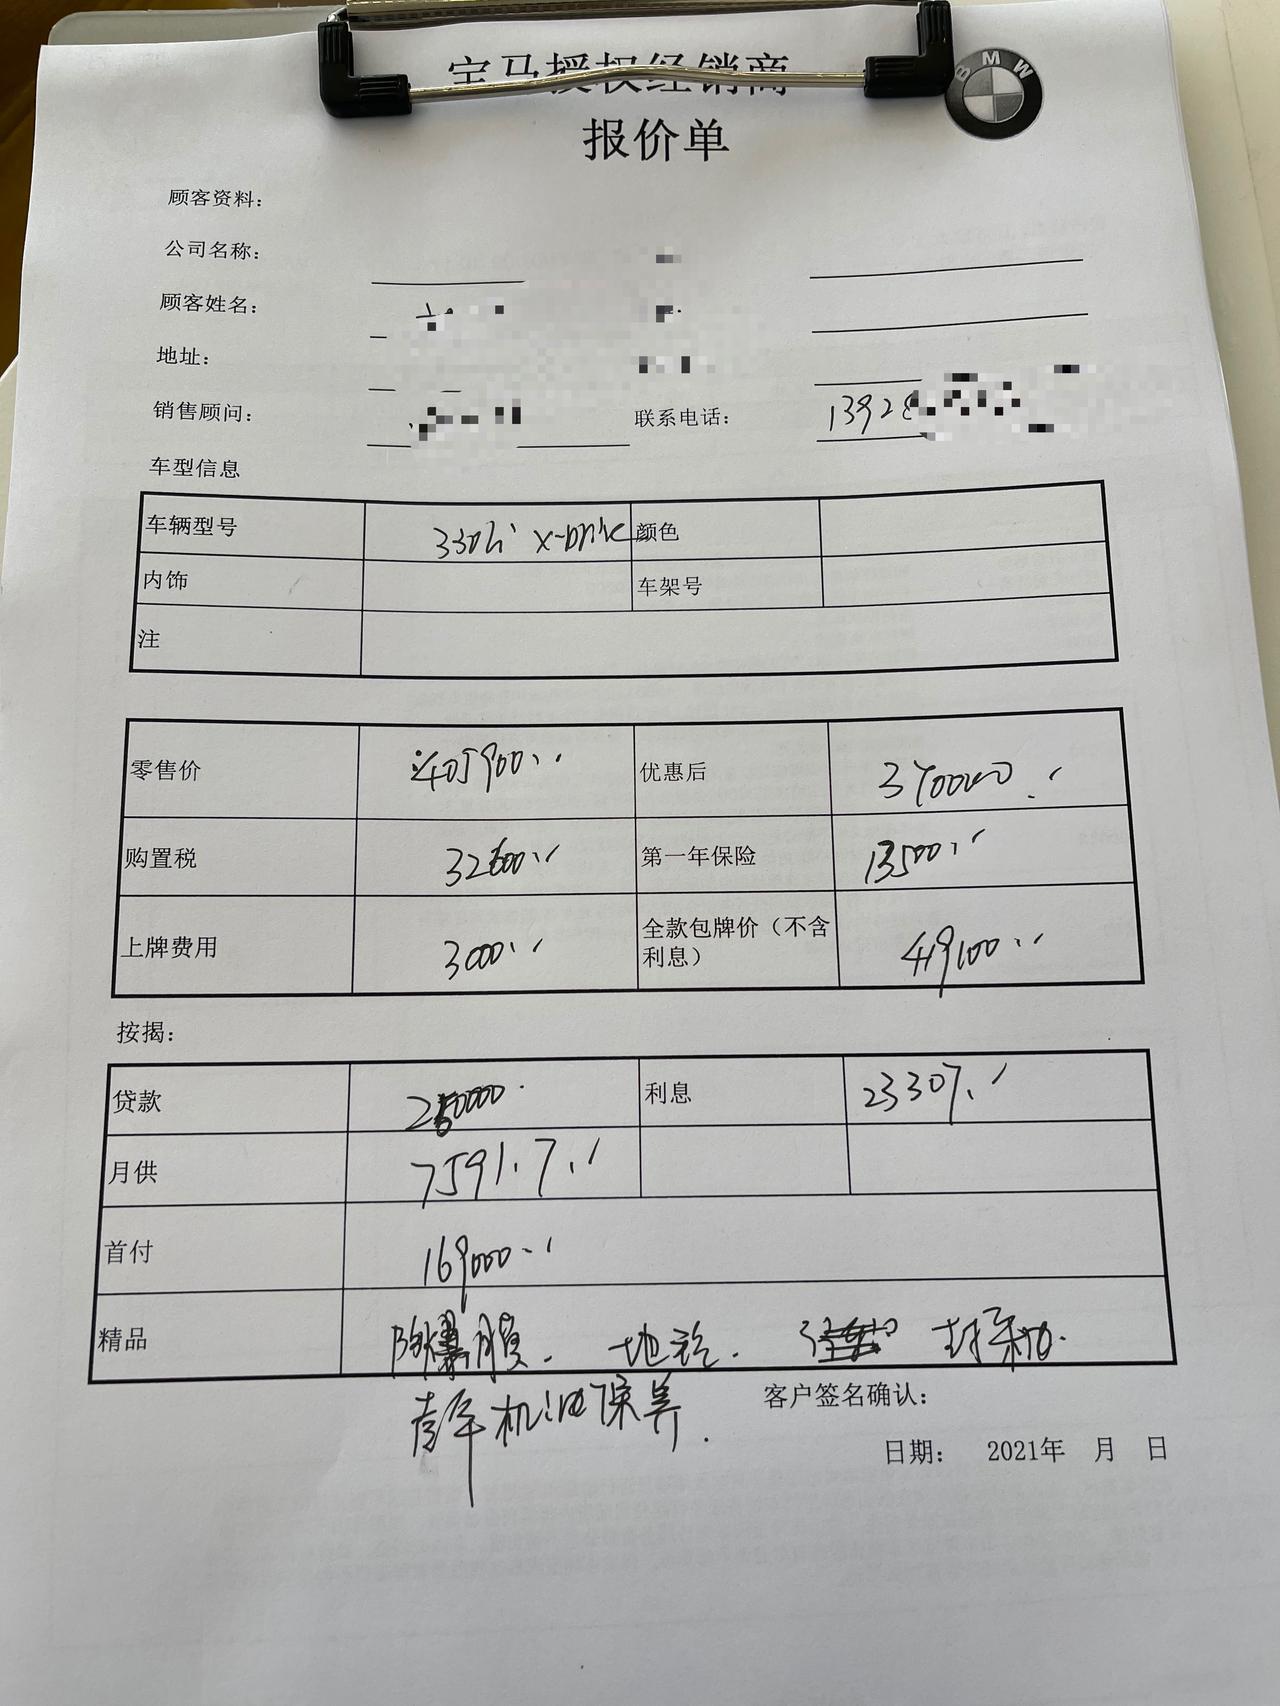 宝马授权经销商
BMW
报价单
顾客资料：
公司名称：
顾客姓名：
地址：
销售顾问： 联系电话： 13928
车型信息
车辆型号 330Li X-Drive 颜色
内饰 车架号
注
零售价 405900 优惠后 370000
购置税 32600 第一年保险 13500
上牌费用 3000 全款包牌价（不含利息） 419100
按揭：
贷款 250000 利息 23307
月供 7591.7
首付 169000
精品 防爆膜. 地毯.
机油保养.
客户签名确认：
日期： 2021年 月 日